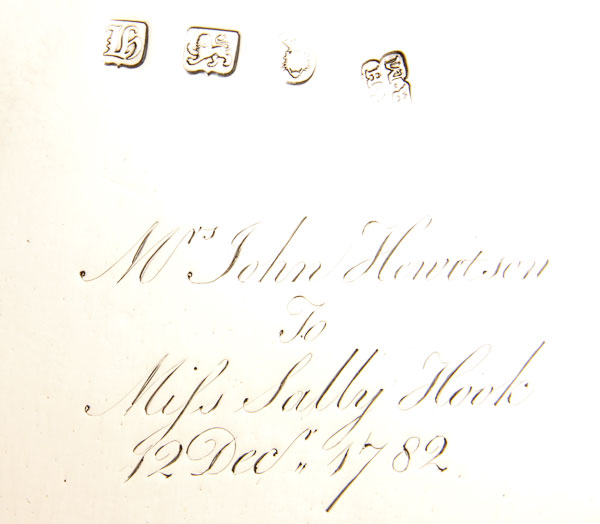 H
Mrs John Hewitson
To
Miſs Sally Hook
12 Decr. 1782